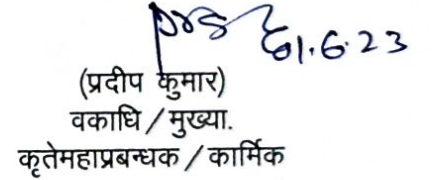 01.6.23
(प्रदीप कुमार)
वकाधि / मुख्या.
कृतेमहाप्रबन्धक / कार्मिक